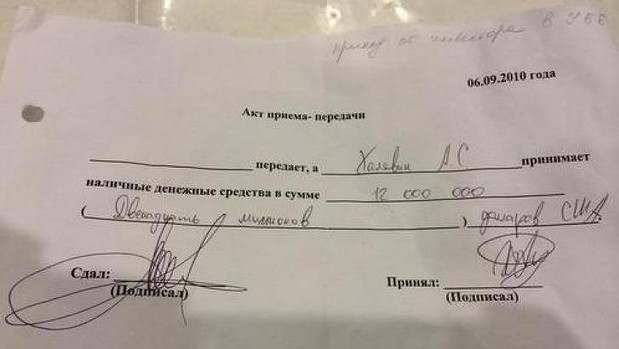 приход от инвестора в УБЕ
06.09.2010 года
Акт приема- передачи
передает, а Халявин А.С принимает
наличные денежные средства в сумме 12 000 000
( Двенадцать миллионов ) долларов США.
Сдал:
(Подписал)
Принял:
(Подписал)